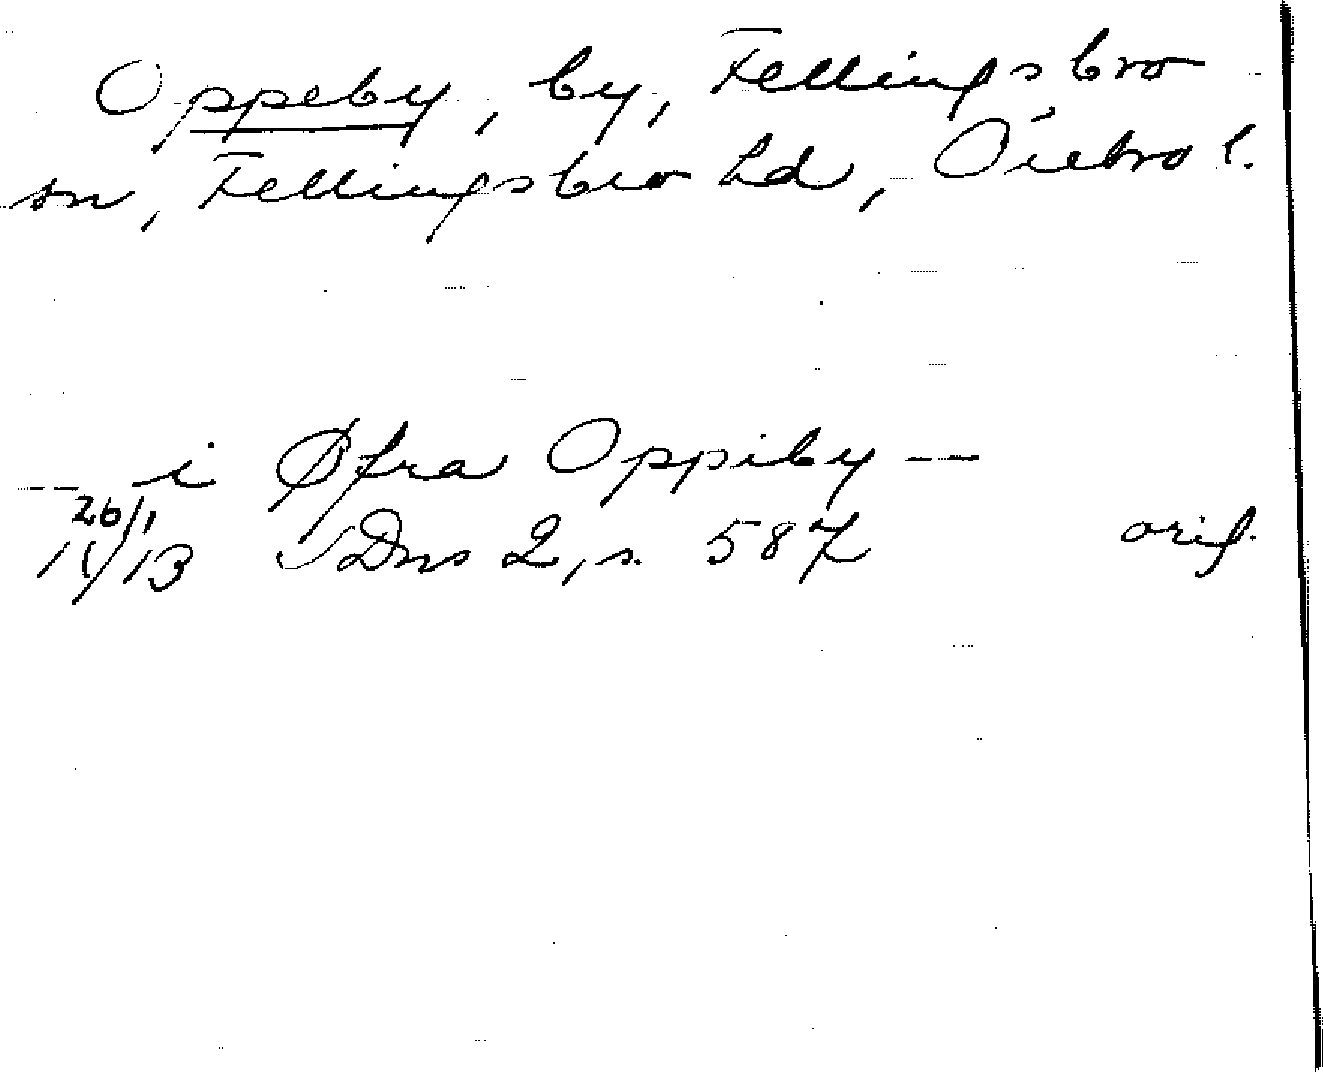 Oppeby, by, Fellingsbro
sn, Fellingsbro hd, Örebro l.
— i Øfra Oppiby —
26/1
1413 SDns 2, s. 587 orig.